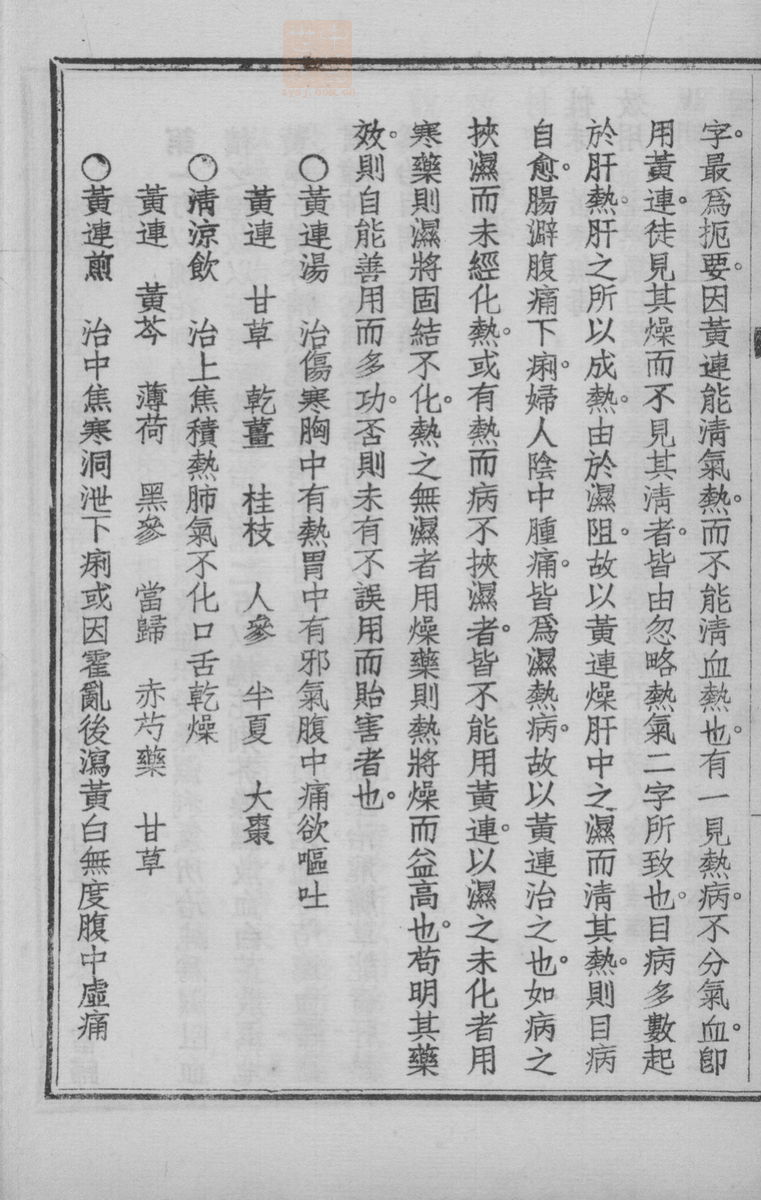 字。最爲扼要。因黃連能淸氣熱。而不能淸血熱也。有一見熱病。不分氣血。卽
用黃連。徒見其燥而不見其淸者。皆由忽略熱氣二字所致也。目病多數起
於肝熱。肝之所以成熱。由於濕阻。故以黃連燥肝中之濕而淸其熱。則目病
自愈。腸澼腹痛下痢。婦人陰中腫痛。皆爲濕熱病。故以黃連治之也。如病之
挾濕而未經化熱。或有熱而病不挾濕者。皆不能用黃連。以濕之未化者用
寒藥則濕將固結不化。熱之無濕者用燥藥則熱將燥而益高也。苟明其藥
效。則自能善用而多功。否則未有不誤用而貽害者也。
○黃連湯　治傷寒胸中有熱胃中有邪氣腹中痛欲嘔吐
黃連　甘草　乾薑　桂枝　人參　半夏　大棗
○淸涼飲　治上焦積熱肺氣不化口舌乾燥
黃連　黃芩　薄荷　黑參　當歸　赤芍藥　甘草
○黃連煎　治中焦寒洞泄下痢或因霍亂後瀉黃白無度腹中虛痛